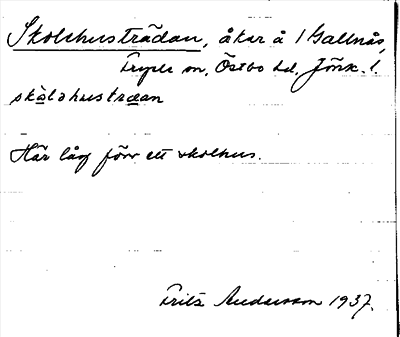 Skolehusträdan, åkar å 1 Gallnås,
Fryele sn, Östbo hd, Jönk. l.
skòlahustrædan
Här låg förr ett skolhus.
Fritz Andersson 1937.